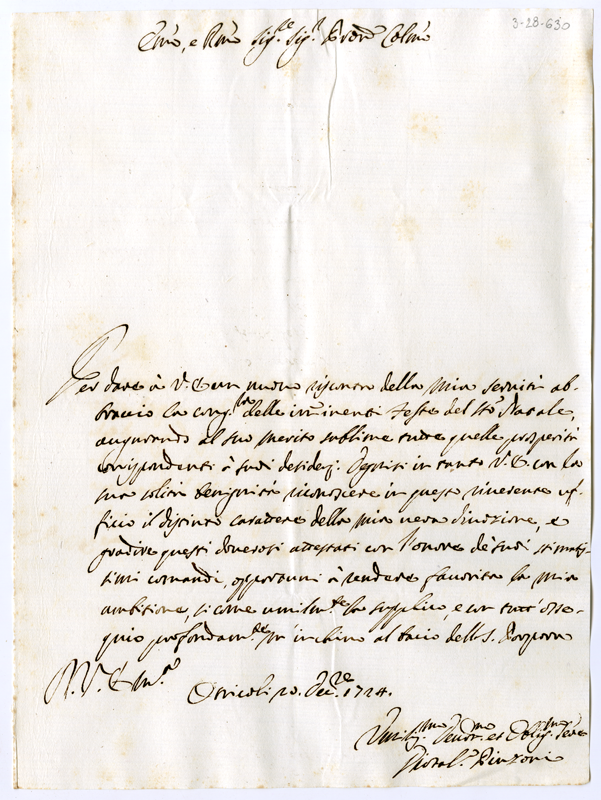 3-28-630
Emo, e Rmo Sigre, Sigr Pron Colmo
Per dare à V. E. un nuovo riscontro della mia servitù ab-
braccio la cong.re delle imminenti Feste del Sto Natale,
augurando al suo merito sublime tutte quelle prosperità
corrispondenti à suoi desiderj. Degnisi in tanto V. E. con la
sua solita benignità riconoscere in questo riverente uf-
ficio il distinto carattere della mia vera divozione, e
gradire questi doverosi attestati con l'onore de' suoi stimatis-
simi comandi, opportuni à rendere favorita la mia
ambitione, si come umilmte la supplico, e con tutt'osse-
quio profondamte m'inchino al bacio della S. Porpora
D. V. Em.a
Otricoli 20. Decre 1724.
Umilmo Devmo et Obligmo Serre